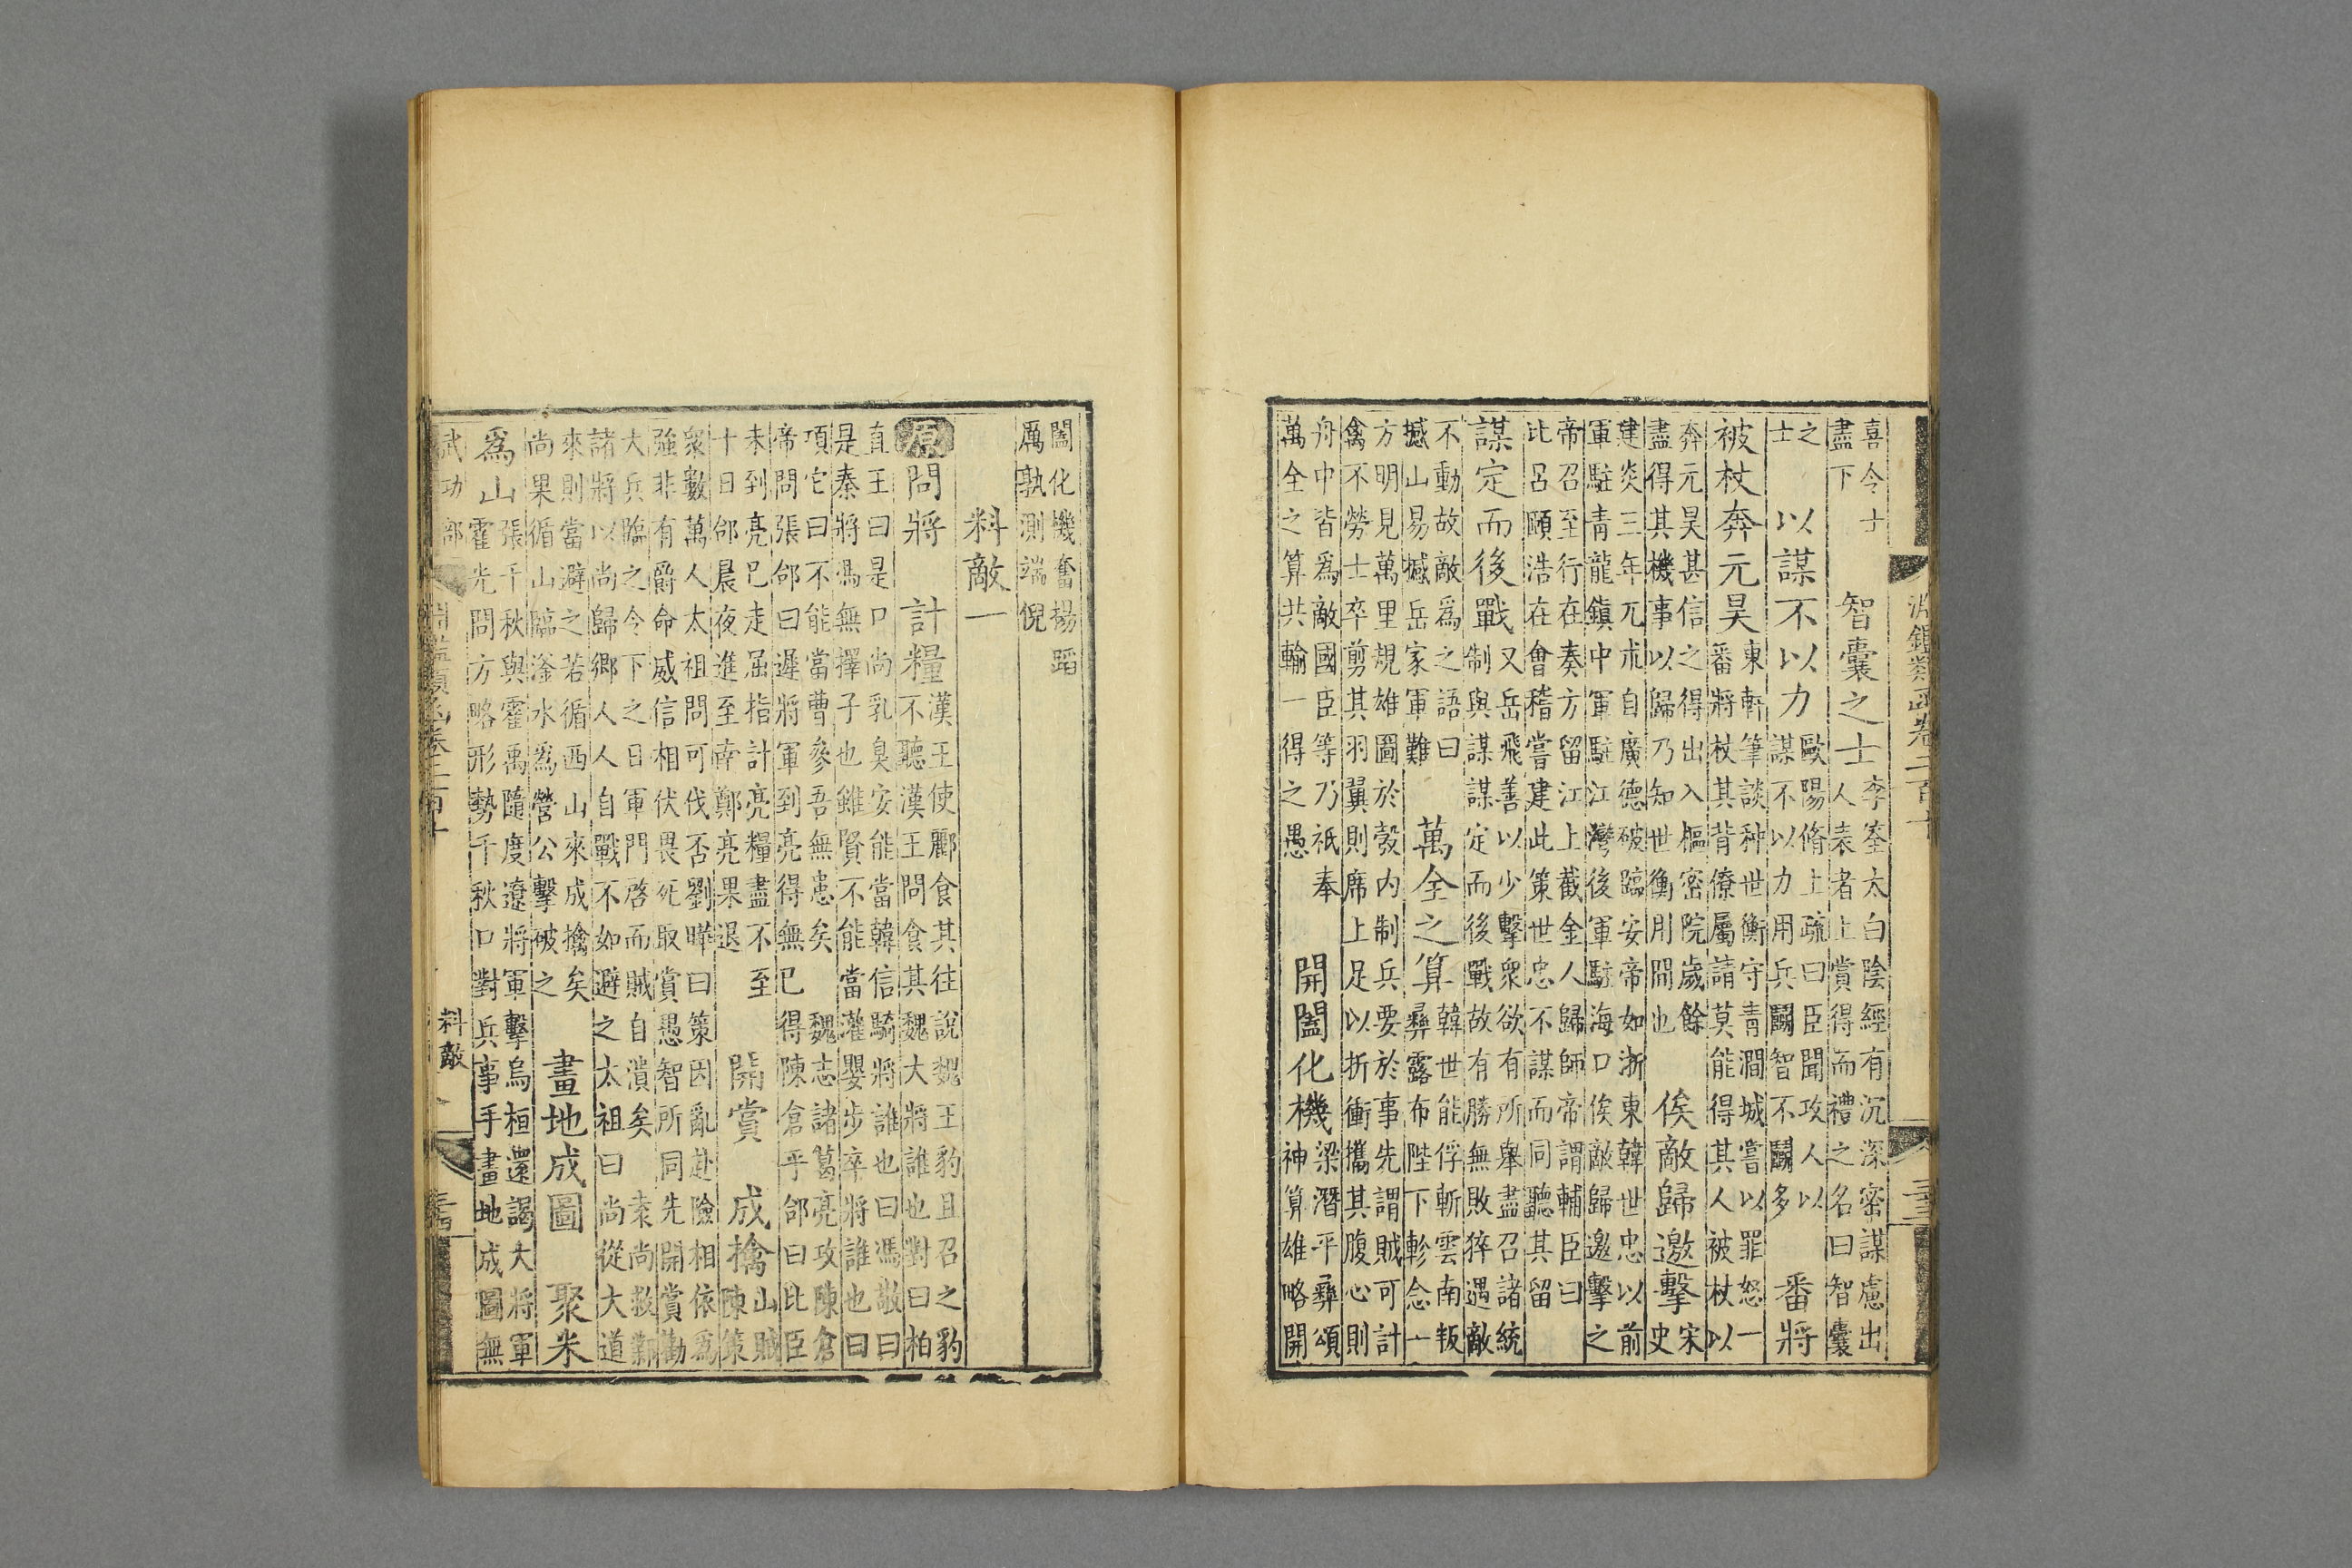 淵鑑類函卷二百十
喜令士
盡下
智囊之士
李筌太白陰經有沉深密謀慮出
人表者上賞得而禮之名曰智囊
之
士
以謀不以力
歐陽脩上疏曰臣聞攻人以
謀不以力用兵鬭智不鬭多
番將
被杖奔元昊
東軒筆談种世衡守青澗城嘗以罪怒一
番將杖其背僚屬請莫能得其人被杖以
奔元昊甚信之得出入樞密院歲餘
盡得其機事以歸乃知世衡用間也
俟敵歸邀擊
宋
史
建炎三年兀朮自廣德破臨安帝如浙東韓世忠以前
軍駐青龍鎮中軍駐江灣後軍駐海口俟敵歸邀擊之
帝召至行在奏方留江上截金人歸師帝謂輔臣曰
比呂頤浩在會稽嘗建此策世忠不謀而同聽其留
謀定而後戰
又岳飛善以少擊衆欲有所舉盡召諸統
制與謀謀定而後戰故有勝無敗猝遇敵
不動故敵爲之語曰
撼山易撼岳家軍難
萬全之算
韓世能俘斬雲南叛
彝露布陛下軫念一
方明見萬里規雄圖於彀内制兵要於事先謂賊可計
禽不勞士卒剪其羽翼則席上足以折衝攜其腹心則
舟中皆爲敵國臣等乃祇奉
萬全之算共輸一得之愚
開闔化機
梁潛平彝頌
神算雄略開
闔化機奮揚蹈
厲孰測端倪
料敵一
原問將
計糧
漢王使酈食其往說魏王豹且召之豹
不聽漢王問食其魏大將誰也對曰柏
直王曰是口尚乳臭安能當韓信騎將誰也曰馮敬曰
是秦將馮無擇子也雖賢不能當灌嬰步卒將誰也曰
項它曰不能當曹參吾無患矣 魏志諸葛亮攻陳倉
帝問張郃曰遲將軍到亮得無已得陳倉乎郃曰比臣
未到亮已走屈指計亮糧盡不至
十日郃晨夜進至南鄭亮果退
開賞
成擒
山賊
陳策
衆數萬人太祖問可伐否劉曄曰策因亂赴險相依爲
強非有爵命威信相伏畏死取賞愚智所同先開賞勸
大兵臨之令下之日軍門啓而賊自潰矣 袁尚救鄴
諸將以尚歸鄉人人自戰不如避之太祖曰尚從大道
來則當避之若循西山來成擒矣
尚果循山臨滏水爲營公擊破之
畫地成圖
聚米
爲山
張千秋與霍禹隨度遼將軍擊烏桓還謁大將軍
霍光問方略形勢千秋口對兵事手畫地成圖無
武功部
淵鑑類函卷二百十
料敵一